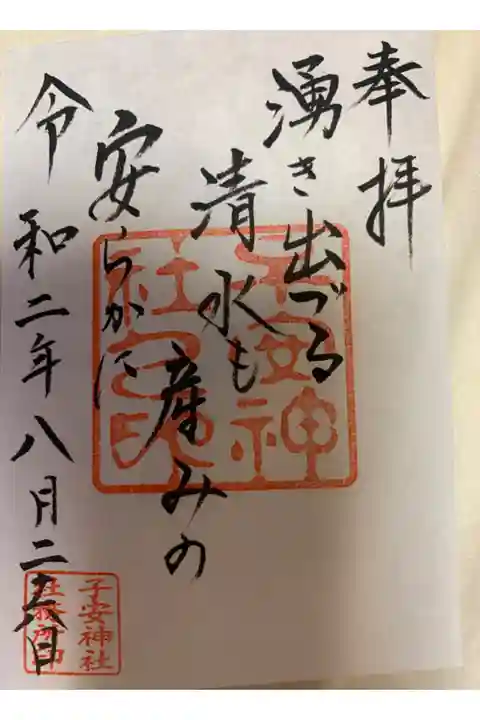 奉拝
湧き出づる
清水も産みの
安らかに
令和二年八月二六日
子安神
社之印
子安神社
社務所印